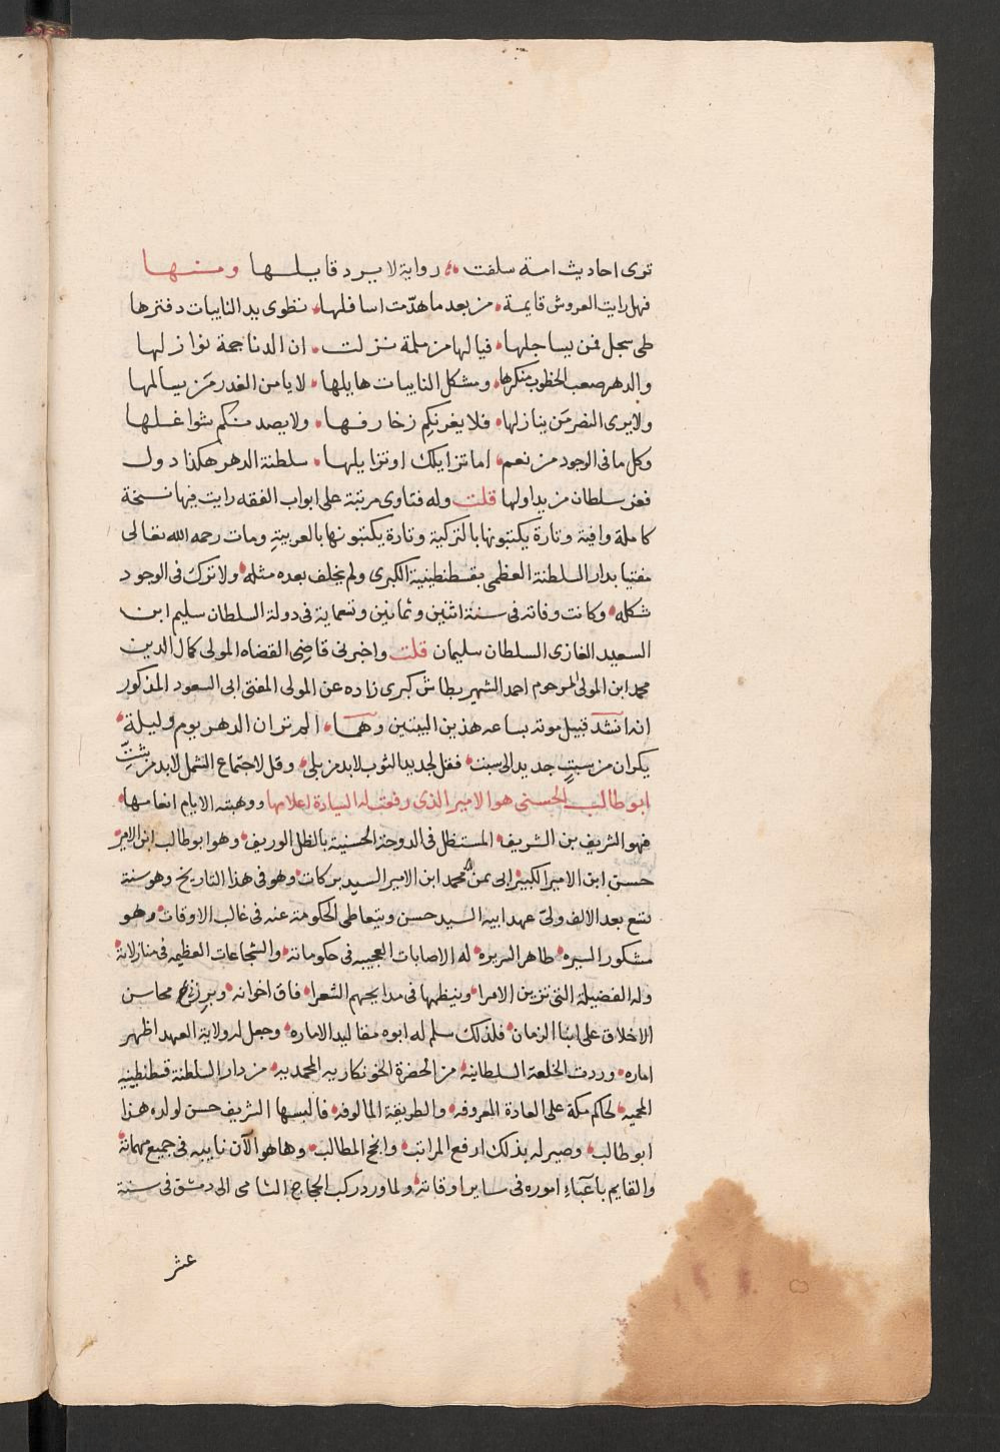 توى احاديث امة سلفت رواية لا يرد قايلها ومنها
فهل رايت العروش قايمة من بعد ما هدّمت اسافلها تطوى يد النايبات دفترها
طى سجل فمن يساجلها فيالها من ملمة نزلت ان الدنا جمة نوازلها
والدهر صعب الخطوب منكرها ومشكل النايبات هايلها لا يامن الغدر مَن يسالمها
ولا يرى النصر مَن ينازلها فلا يغرنكم زخارفها ولا يصدمنكم شواغلها
وكل ما فى الوجود من نعم اما تزايلك او تزايلها سلطنة الدهر هكذا دول
فعز سلطان من يداولها قلت وله فتاوى مرتبة على ابواب الفقه رايت فيها نسخة
كاملة وافية وتارة يكتبونها بالتركية وتارة يكتبونها بالعربية ومات رحمه الله تعالى
مفتيا بدار السلطنة العظمى بقسطنطينية الكبرى ولم يخلف بعده مثله ولا ترك فى الوجود
شكله وكانت وفاته فى سنة اثنين وثمانين وتسعماية فى دولة السلطان سليم ابن
السعيد الغازى السلطان سليمان قلت واخبرنى قاضى القضاه المولى كمال الدين
محمد ابن المولى المرحوم احمد الشهير بطاش كبرى زاده عن المولى المفتى ابى السعود المذكور
انه انشد قبيل موته بساعه هذين البيتين وهما الم تر ان الدهر يوم وليلة
يكران من سبت جديد الى سبت فقل لجديد الثوب لا بد من بلى وقل لاجتماع الشمل لا بد من شتّ
ابو طالب الحسنى هو الامير الذى رفعت له السيادة اعلامها ووهبته الايام انعامها
فهو الشريف بن الشريف المستظل فى الدوحة الحسنية بالظل الوريف وهو ابو طالب ابن الامير
حسن ابن الامير الكبير ابى نمى محمد ابن الامير السيد بركات وهو فى هذا التاريخ وهو سنة
تسع بعد الالف ولىّ عهد ابيه السيد حسن ويتعاطى الحكومة عنه فى غالب الاوقات وهو
مشكور السيره طاهر السريره له الاصابات العجيبه فى حكوماته والشجاعات العظيمه فى منازلاته
وله الفضيلة التى تزين الامرا وينيظمها فى مدايحهم الشعرا فاق اخوانه وبرز فى محاسن
الاخلاق على ابنا الزمان فلذلك سلم له ابوه مقاليد الاماره وجعل له ولاية العهد اظهر
اماره ووردت الخلعة السلطانية من الحضرة الخونكاريه المحمديه من دار السلطنة قسطنطينيه
المحميه لحاكم مكة على العادة المعروفه والطريقة المالوفه فالبسها الشريف حسن لولده هذا
ابو طالب وصير له بذلك ارفع المراتب وانجح المطالب وها هو الآن نايبه فى جميع مهماته
والقايم بأعبآء اموره فى ساير اوقاته ولما ورد ركب الحجاج الشامى الى دمشق فى سنة
عشر